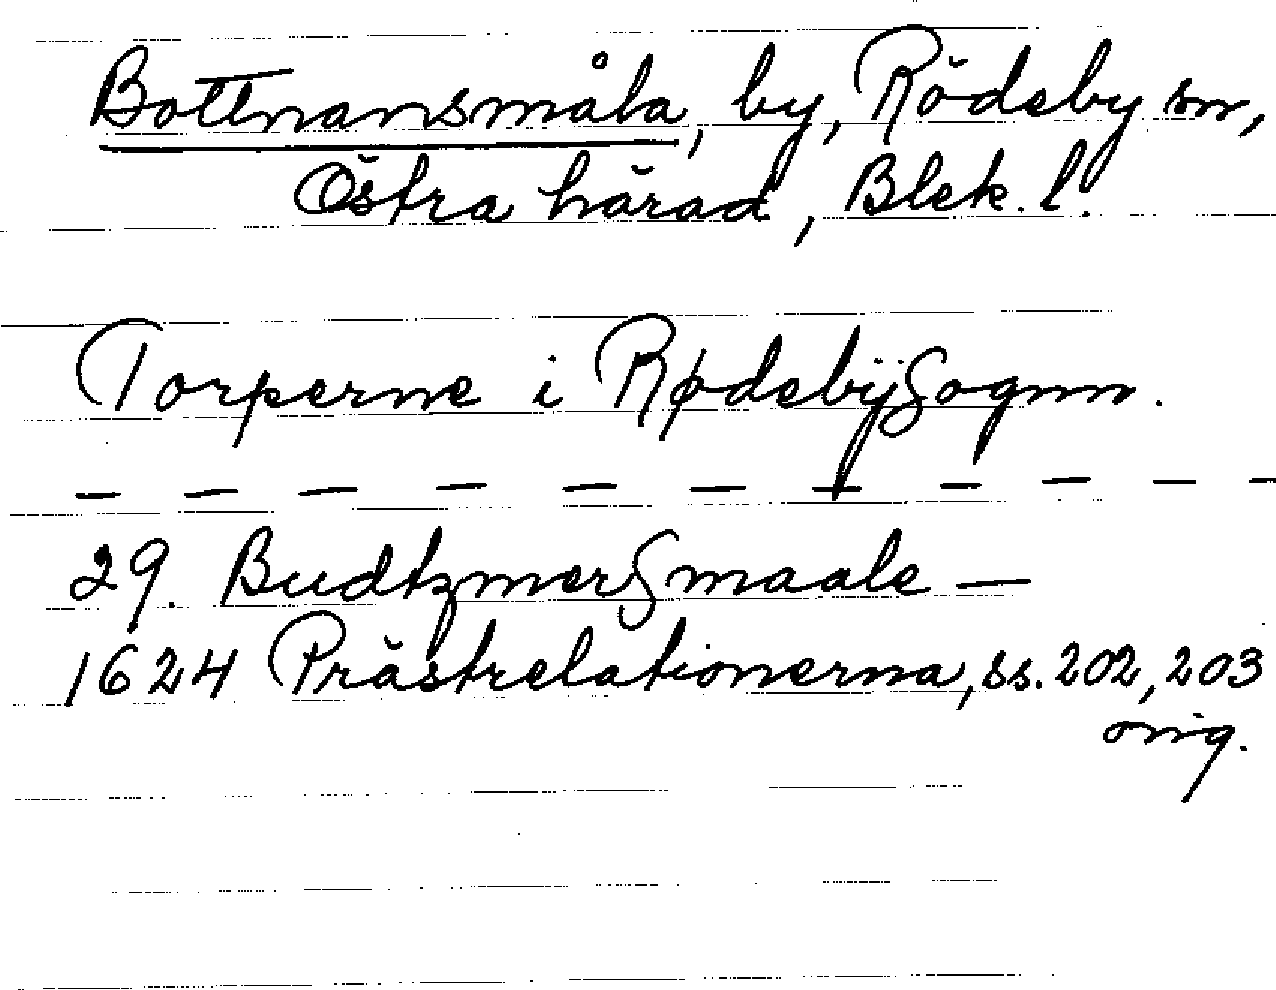 Bottnansmåla, by, Rödeby sn,
Östra härad, Blek. l.
Torperne i RødebÿSognn.
— — — — — — — — — — —
29. BudtzmerSmaale —
1624 Prästrelationerna, ss. 202, 203
orig.